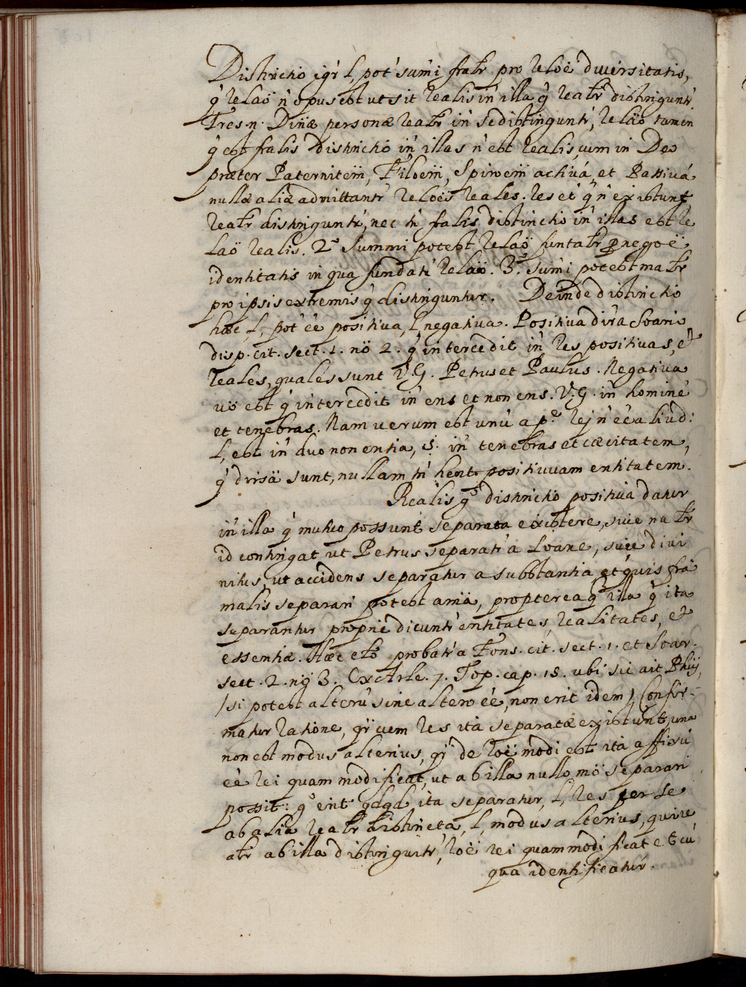 Distinctio igr l, pot sumi fratr pro reloë diuersitatis,
q̃ relaö n̄ opus est ut sit realis in' illa q̃ realtr distinguntr̃
Tres n. Diuæ personæ realtr in' se distinguntr̃, relaö tamen
q̃ est fralis distinctio in' illas n̄ est realis, cum in Deo
præter Paternitem̃, Filoem̃, Spiroem̃ actiuã et Passiuã
nullæ aliæ admittantr̃ reloes reales. res et q̃ n̄ existunt
realtr distinguntr̃, nec tn̄ fralis distinctio in' illas est re
laö realis. 2º Summi potest relaö funtaltr pro negoë
identitatis in qua fundatr̃ relaö. 3º Sumi potest matr
pro ipsis extremis q̃ distinguntur. Deinde distinctio
hæc, l, pot eẽ positiua, l, negatiua. Positiua dir̃ a Soario
disp. cit. sect. 1. nö 2. q̃ intercedit in' res positiuas, et
reales, quales sunt V.G. Petrus et Paulus. Negatiua
uö est q̃ intercedit in' ens et non ens. V.G. in' hominẽ
et tenebras. Nam uerum est unũ a pe. rej n̄ eẽ aliud:
l, est in' duo non entia, s. in' tenebras et cæcitatem,
q̃ dirsä sunt, nullam tn̄ hent positiuam entitatem.
Realis gº distinctio positiua datur
in' illa q̃ mutuo possunt separata existere, siue naltr
id contingat ut Petrus separatr̃ a Ioane, siue diui
nitus, ut accidens separatur a substantia et quis
malis separari potest aniä, propterea gº illa q̃ ita
separantur propriẽ dicuntr̃ entitates, realitates, et
essentiæ. Hæc probatr̃ a Fons. cit. sect. 1. et Soar.
sect. 2. nö 3. Ex Arle. 7. Top. cap. 1s. ubi sic ait Phus,
/si potest alterũ sine altero eẽ, non erit idem/ confir-
matur ratione, qr̃ cum res ita separatæ existunt, una
non est modus alterius, qr̃ de roë modi est ita affixũ
eẽ rei quam modificat, ut ab illa nullo mö separari
possit: gº erit qdqd ita separatur, l, res per se
ab alia realtr distincta, l, modus alterius, qui re
altr ab illa distinguitr̃, roë rei quam modificat et cũ
qua identificatur.